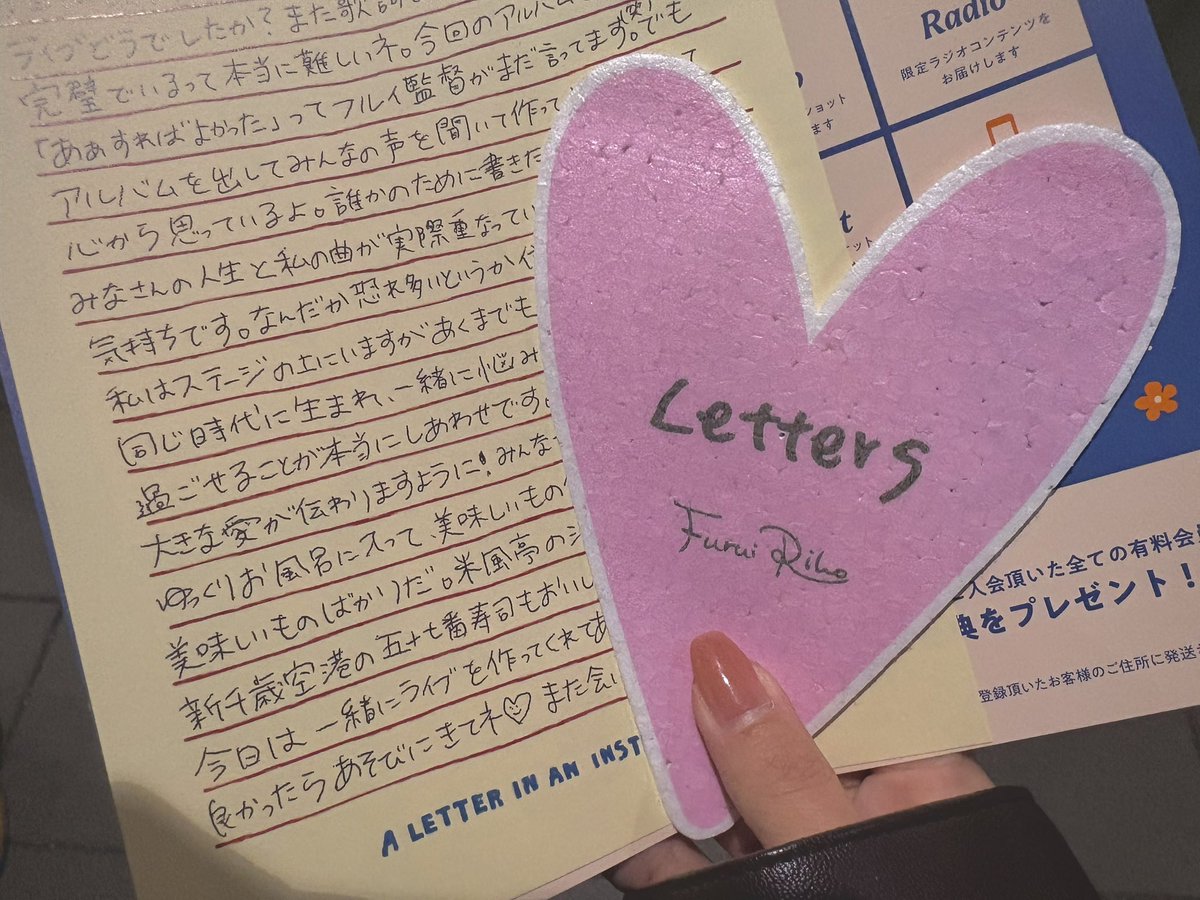 ライブどうでしたか？また歌詞
完璧でいるって本当に難しいネ。今回のアルバム
「ああすればよかった」ってフルイ監督がまだ言ってます。(笑)でも
アルバムを出してみんなの声を聞いて作って
心から思っているよ。誰かのために書きた
みなさんの人生と私の曲が実際重なってい
気持ちです。なんだか恐れ多いというか
私はステージの上にいますがあくまでも
同じ時代に生まれ、一緒に悩み
過ごせることが本当にしあわせです。
大きな愛が伝わりますように！みんな
ゆっくりお風呂に入って、美味しいもの
美味しいものばかりだ。米風亭の
新千歳空港の五十七番寿司もおいし
今日は一緒にライブを作ってくれてあ
良かったらあそびにきてネ♡また会い
A LETTER IN AN INST
Letters
Furui Riho
Radio
限定ラジオコンテンツを
お届けします
ショット
ます
t
ット
入会頂いた全ての有料会
典をプレゼント！
登録頂いたお客様のご住所に発送